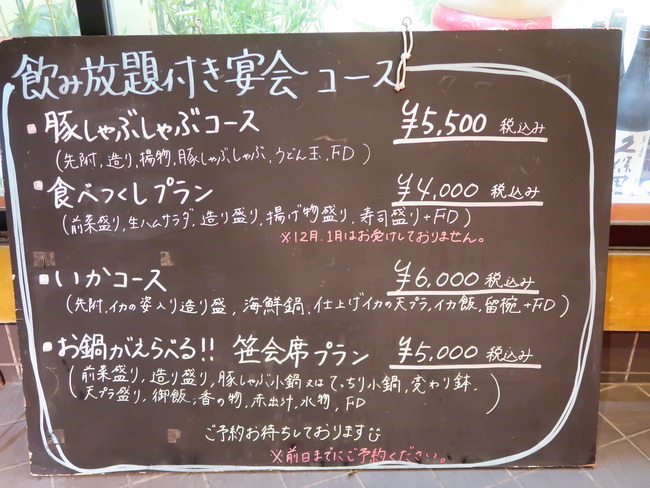 飲み放題付き宴会コース
・豚しゃぶしゃぶコース ¥5,500 税込み
(先附,造り,揚物,豚しゃぶしゃぶ,うどん玉,FD)
・食べつくしプラン ¥4,000 税込み
(前菜盛り,生ハムサラダ,造り盛り,揚げ物盛り,寿司盛り+FD)
※12月.1月はお受けしておりません。
・いかコース ¥6,000 税込み
(先附,イカの姿入り造り盛,海鮮鍋,仕上げイカの天プラ,イカ飯,留椀,+FD)
・お鍋がえらべる!! 笹会席プラン ¥5,000 税込み
(前菜盛り,造り盛り,豚しゃぶ小鍋又はてっちり小鍋,変わり鉢.
天プラ盛り,御飯,香の物,赤出汁,水物,FD)
ご予約お待ちしております
※前日までにご予約ください。
久保田